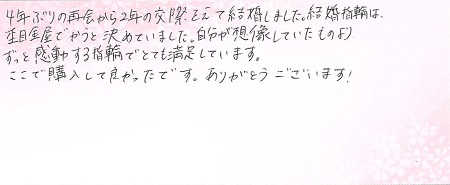 4年ぶりの再会から2年の交際をへて結婚しました。結婚指輪は、
杢目金屋でかうと決めていました。自分が想像していたものより
ずっと感動する指輪でとても満足しています。
ここで購入して良かったです。ありがとうございます!